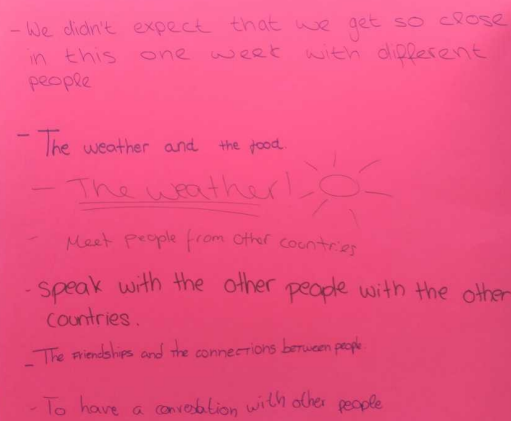 - We didn't expect that we get so close
in this one week with different
people
- The weather and the food.
- The weather!
- Meet people from other countries
- speak with the other people with the other
countries.
- The Friendships and the connections between people.
- To have a convesation with other people